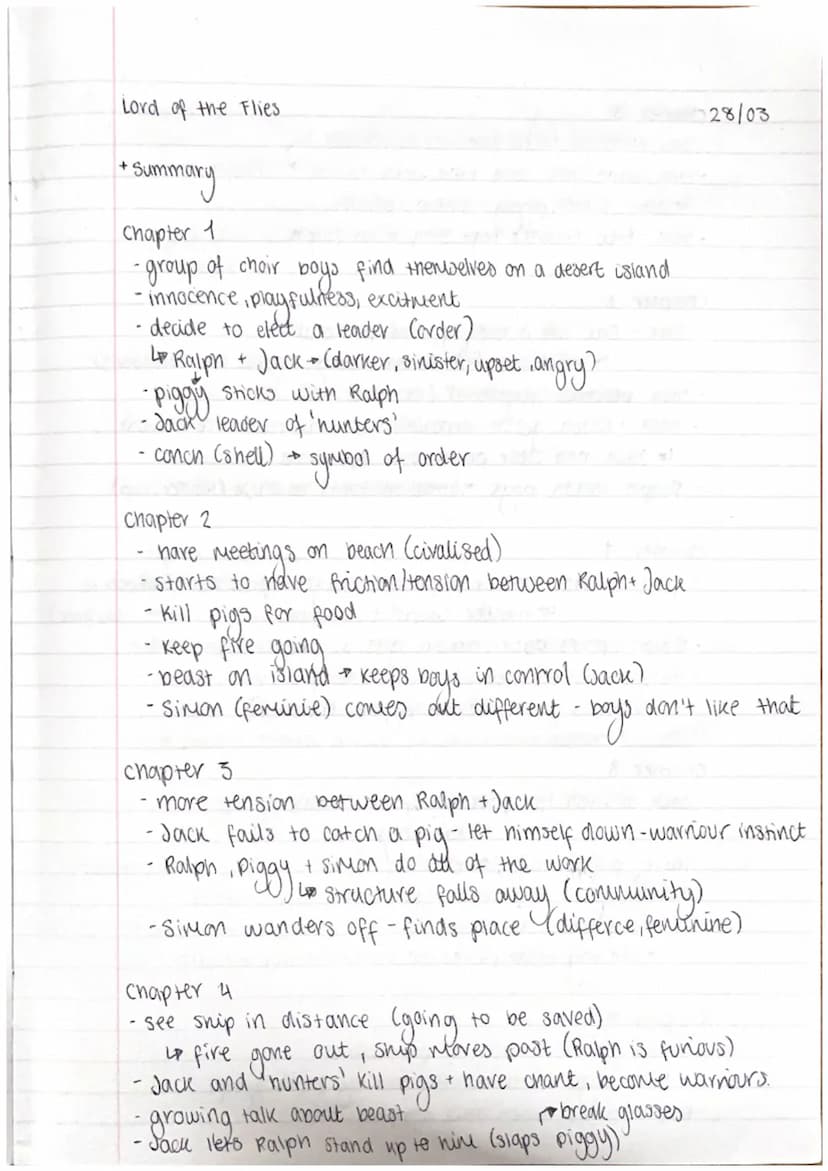 Lord of the Flies 28/03
+ Summary
Chapter 1
- group of choir boys find themselves on a desert island
- innocence, playfulness, excitment
- decide to elect a leader (order)
↳ Ralph + Jack → (darker, sinister, upset, angry)
- piggy sticks with Ralph
- Jack leader of 'hunters'
- conch (shell) → symbol of order
Chapter 2
- have meetings on beach (civalised)
- starts to have friction/tension between Ralph + Jack
- Kill pigs for food
- Keep fire going
- beast on island → keeps boys in control (Jack)
- Simon (feminie) comes out different - boys don't like that
Chapter 3
- more tension between Ralph + Jack
- Jack fails to catch a pig - let himself down - warriour instinct
- Ralph, Piggy + Simon do all of the work
↳ structure falls away (community)
- Simon wanders off - finds place (differce, feminine)
Chapter 4
- see ship in distance (going to be saved)
↳ fire gone out, ship moves past (Ralph is furious)
- Jack and 'hunters' kill pigs + have chant, become warriours.
- growing talk about beast → break glasses
- Jack lets Ralph stand up to him (slaps piggy)